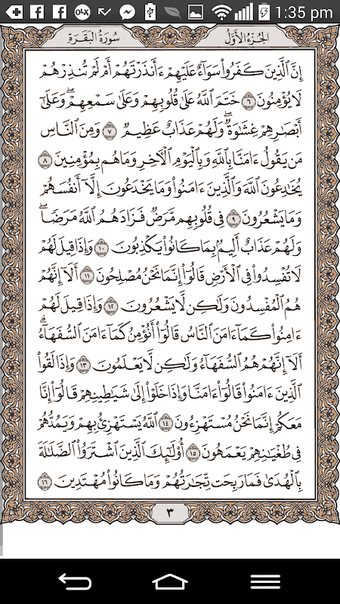 1:35 pm
سُورَةُ البَقَرَةِ الجُزْءُ الأَوَّلُ
إِنَّ ٱلَّذِينَ كَفَرُوا۟ سَوَآءٌ عَلَيْهِمْ ءَأَنذَرْتَهُمْ أَمْ لَمْ تُنذِرْهُمْ
لَا يُؤْمِنُونَ ٦ خَتَمَ ٱللَّهُ عَلَىٰ قُلُوبِهِمْ وَعَلَىٰ سَمْعِهِمْ ۖ وَعَلَىٰٓ
أَبْصَٰرِهِمْ غِشَٰوَةٌ ۖ وَلَهُمْ عَذَابٌ عَظِيمٌ ٧ وَمِنَ ٱلنَّاسِ
مَن يَقُولُ ءَامَنَّا بِٱللَّهِ وَبِٱلْيَوْمِ ٱلْءَاخِرِ وَمَا هُم بِمُؤْمِنِينَ ٨
يُخَٰدِعُونَ ٱللَّهَ وَٱلَّذِينَ ءَامَنُوا۟ وَمَا يَخْدَعُونَ إِلَّآ أَنفُسَهُمْ
وَمَا يَشْعُرُونَ ٩ فِى قُلُوبِهِم مَّرَضٌ فَزَادَهُمُ ٱللَّهُ مَرَضًا ۖ
وَلَهُمْ عَذَابٌ أَلِيمٌۢ بِمَا كَانُوا۟ يَكْذِبُونَ ١٠ وَإِذَا قِيلَ لَهُمْ
لَا تُفْسِدُوا۟ فِى ٱلْأَرْضِ قَالُوٓا۟ إِنَّمَا نَحْنُ مُصْلِحُونَ ١١ أَلَآ إِنَّهُمْ
هُمُ ٱلْمُفْسِدُونَ وَلَٰكِن لَّا يَشْعُرُونَ ١٢ وَإِذَا قِيلَ لَهُمْ
ءَامِنُوا۟ كَمَآ ءَامَنَ ٱلنَّاسُ قَالُوٓا۟ أَنُؤْمِنُ كَمَآ ءَامَنَ ٱلسُّفَهَآءُ ۗ
أَلَآ إِنَّهُمْ هُمُ ٱلسُّفَهَآءُ وَلَٰكِن لَّا يَعْلَمُونَ ١٣ وَإِذَا لَقُوا۟
ٱلَّذِينَ ءَامَنُوا۟ قَالُوٓا۟ ءَامَنَّا وَإِذَا خَلَوْا۟ إِلَىٰ شَيَٰطِينِهِمْ قَالُوٓا۟ إِنَّا
مَعَكُمْ إِنَّمَا نَحْنُ مُسْتَهْزِءُونَ ١٤ ٱللَّهُ يَسْتَهْزِئُ بِهِمْ وَيَمُدُّهُمْ
فِى طُغْيَٰنِهِمْ يَعْمَهُونَ ١٥ أُو۟لَٰٓئِكَ ٱلَّذِينَ ٱشْتَرَوُا۟ ٱلضَّلَٰلَةَ
بِٱلْهُدَىٰ فَمَا رَبِحَت تِّجَٰرَتُهُمْ وَمَا كَانُوا۟ مُهْتَدِينَ ١٦
٣